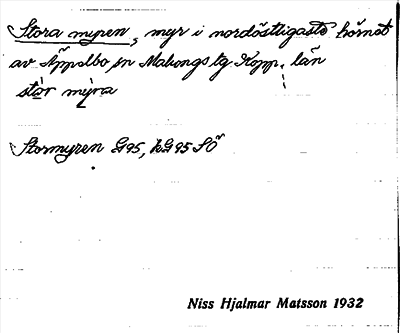 Stora myren, myr i nordöstligaste hörnet
av Äppelbo sn Malungs tg Kopp. län
står mýra
Stormyren G95, kG95 SÖ
Niss Hjalmar Matsson 1932